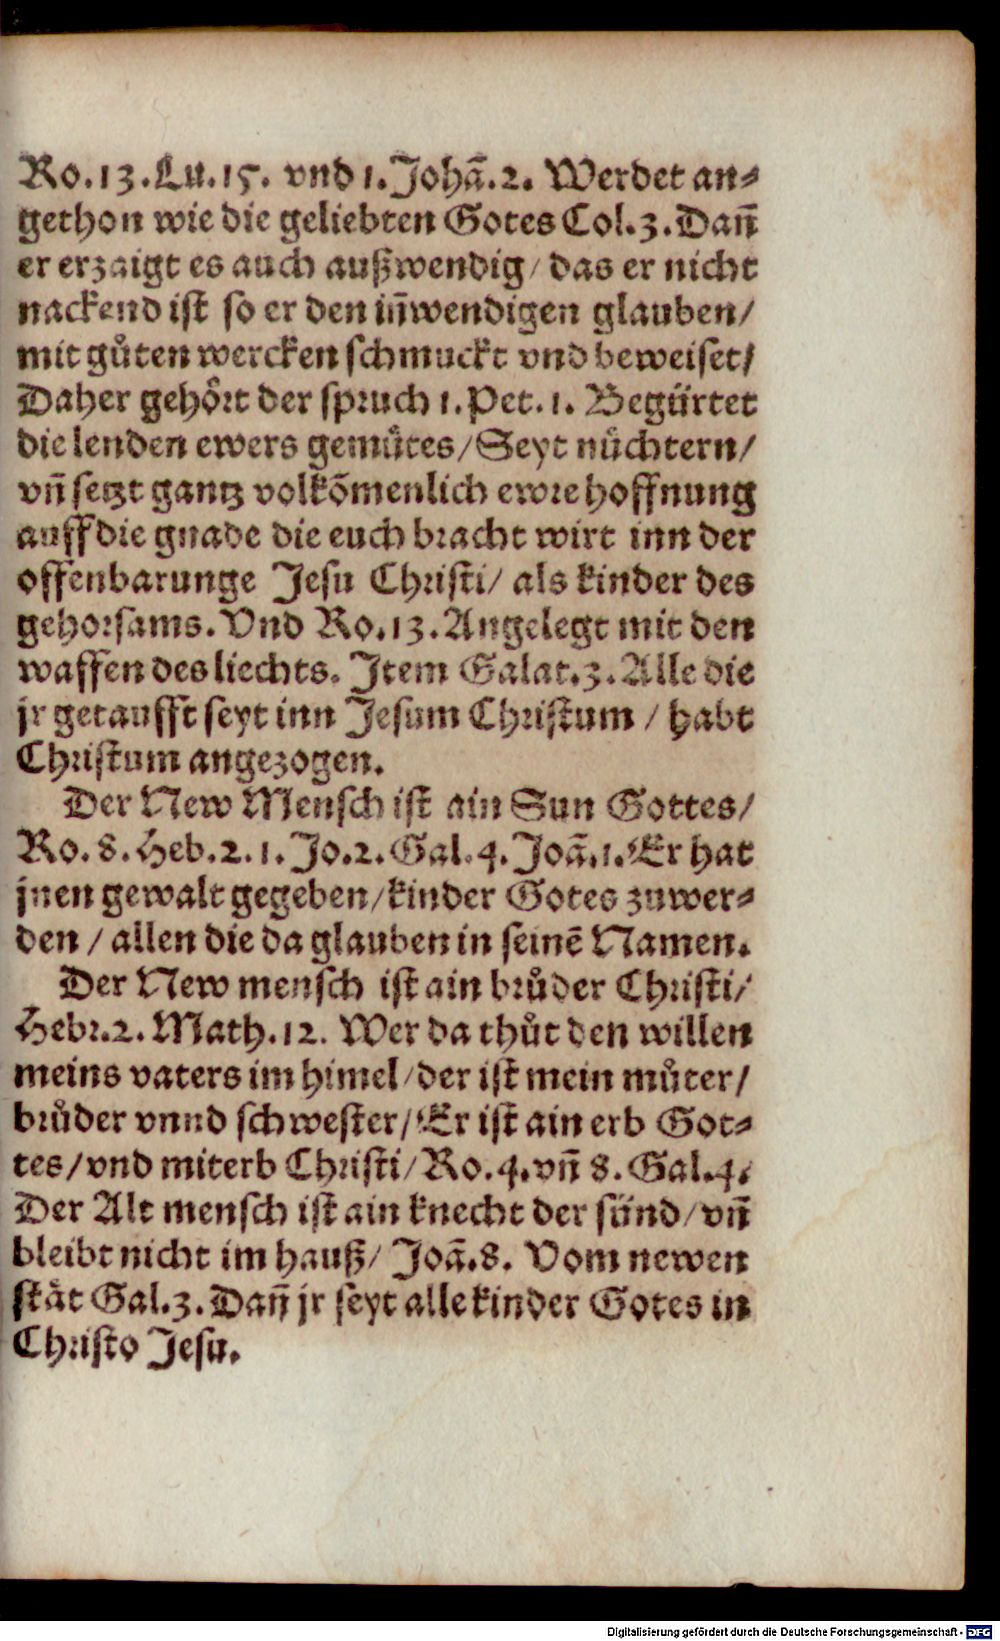 Ro.13.Lu.15. vnd 1.Johã.2. Werdet an⸗
gethon wie die geliebten Gotes Col.3.Dañ
er erzaigt es auch außwendig/ das er nicht
nackend ist so er den iñwendigen glauben/
mit gůten wercken schmuckt vnd beweiset/
Daher gehört der spruch 1.Pet.1. Begürtet
die lenden ewers gemütes/Seyt nüchtern/
vñ setzt gantz volkõmenlich ewre hoffnung
auff die gnade die euch bracht wirt inn der
offenbarunge Jesu Christi/ als kinder des
gehorsams. Vnd Ro.13. Angelegt mit den
waffen des liechts. Item Galat.3. Alle die
jr getaufft seyt inn Jesum Christum / habt
Christum angezogen.
Der New Mensch ist ain Sun Gottes/
Ro. 8. Heb.2. 1. Jo.2. Gal.4. Joã.1. Er hat
jnen gewalt gegeben/kinder Gotes zuwer⸗
den / allen die da glauben in seinẽ Namen.
Der New mensch ist ain brůder Christi/
Hebr.2. Math.12. Wer da thůt den willen
meins vaters im himel/der ist mein můter/
brůder vnnd schwester/Er ist ain erb Got⸗
tes/vnd miterb Christi/Ro.4.vñ 8. Gal.4.
Der Alt mensch ist ain knecht der sünd/vñ
bleibt nicht im hauß/ Joã.8. Vom newen
stät Gal.3. Dañ jr seyt alle kinder Gotes in
Christo Jesu.
Digitalisierung gefördert durch die Deutsche Forschungsgemeinschaft - DFG